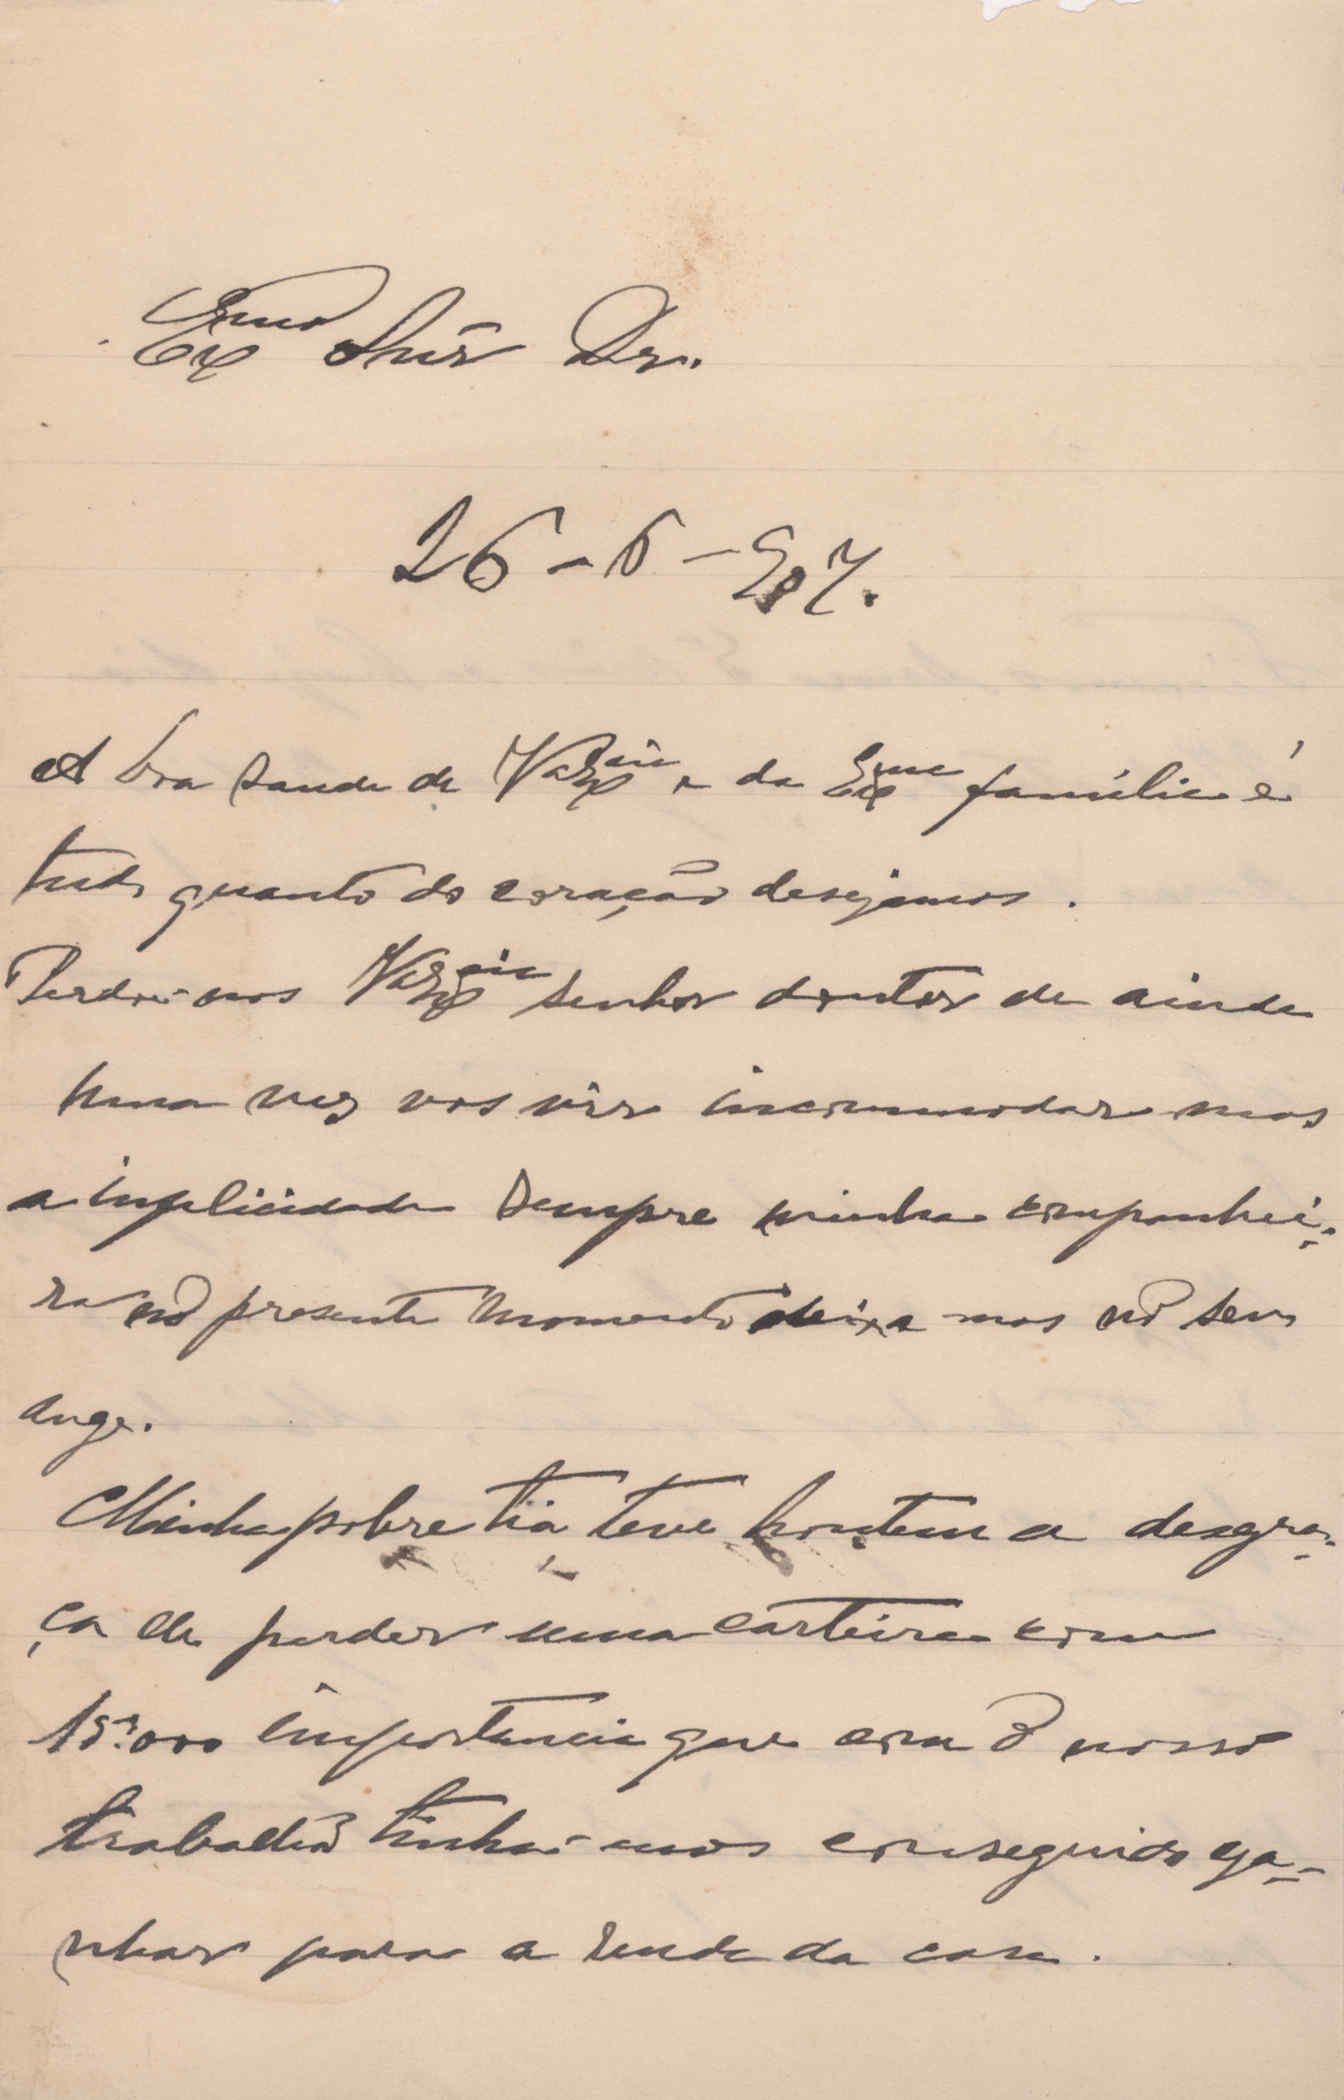 Exmo Snr Dr.
26-6-907.
A boa saude de Va Excia e da Exma familia é
tudo quanto do coração desejamos.
Perdoi-nos Va Excia senhor doutor de ainda
uma vez vos vir incommodar mas
a inplicidade sempre minha companhei-
ra no presente momento deixa-mos no seu
auge.
Minha pobre tia teve hontem a desgra-
ça de perder uma carteira com
15:000 importancia que com o nosso
trabalho tinha-mos conseguido ga-
nhar para a renda da casa.